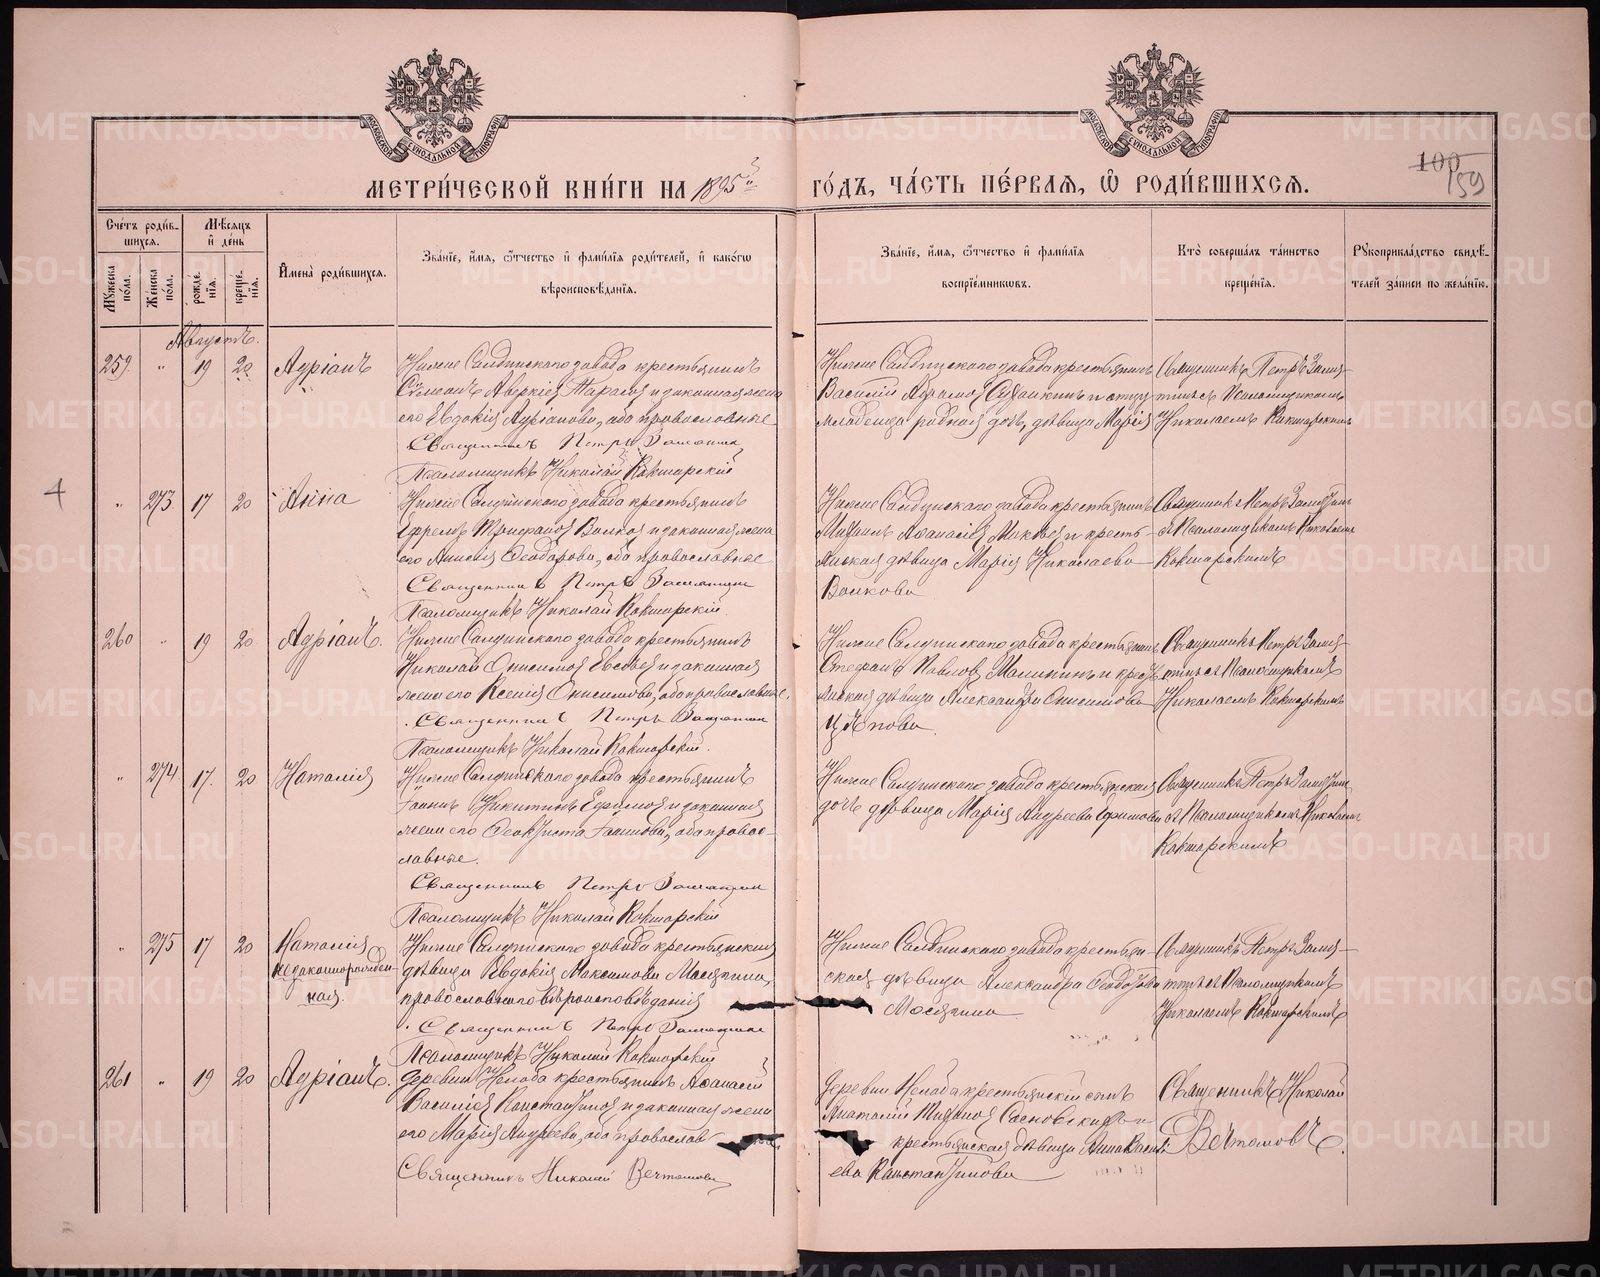 МЕТРИ́ЧЕСКОЙ КНИ́ГИ НА 1895й ГО́ДЪ, ЧА́СТЬ ПЕ́РВАЯ, Ѡ РОДИ́ВШИХСЯ.
100
159
Сче́тъ роди́в-
шихся.
Мѣ́сяцъ
и҆ де́нь
Му́жеска по́ла.
Же́нска по́ла.
рожде́нїя.
креще́нїя.
И҆мена̀ роди́вшихся.
Зва́нїе, и҆́мя, ѻ҆́тчество и҆ фами́лїя роди́телей, и҆ како́гѡ
вѣроисповѣ́данїя.
Зва́нїе, и҆́мя, ѻ҆́тчество и҆ фами́лїя
воспрїе́мникѡвъ.
Кто̀ соверша́лъ та́инство
креще́нїя.
Рꙋкоприкла́дство свидѣ́-
телей за́писи по жела́нїю.
Августъ.
259 " 19 20 Адріанъ
Нижне Салдинскаго завода крестьянинъ
Симеонъ Аверкіев и законная жена
его Евдокія Адріанова, оба православные
Священникъ Петръ
Псаломщикъ Николай Кокшарскій
Нижне Салдинскаго завода крестьянинъ
Василій и отцу
младенца родная дочь, дѣвица Марія
Священникъ Петръ
Псаломщикомъ
Николаемъ Кокшарскимъ
4
" 273 17 20 Анна
Нижне Салдинскаго завода крестьянинъ
Ефремъ Волков и законная жена
его Анисія Ѳеодорова, оба православные
Священникъ Петръ
Псаломщикъ Николай Кокшарскій.
Нижне Салдинскаго завода крестьянинъ
Аѳанасіев и кресть-
янская дѣвица Марія Николаева
Волкова
Священникъ Петръ
съ Псаломщикомъ Николаемъ
Кокшарскимъ
260 " 19 20 Адріанъ.
Нижне Салдинскаго завода крестьянинъ
Николай Онисимов и законная
жена его Ксенія Онисимова, оба православные.
Священникъ Петръ
Псаломщикъ Николай Кокшарскій.
Нижне Салдинскаго завода крестьянинъ
Стефанъ Павлов Малыгинъ и крест-
янская дѣвица Александра Онисимова
Цѣпова.
Священникъ Петръ
съ Псаломщикомъ
Николаемъ Кокшарскимъ
" 274 17. 20 Наталія
Нижне Салдинскаго завода крестьянинъ
Іоаннъ Никитинъ Ефимов и законная
жена его Ѳеоктиста Іоаннова, оба право-
славные.
Священникъ Петръ
Псаломщикъ Николай Кокшарскій
Нижне Салдинскаго завода крестьянская
дочь дѣвица Марія Андреева Ефимова
Священникъ Петръ
съ Псаломщикомъ Николаемъ
Кокшарскимъ
" 275 17 20 Наталія
незаконнорожден-
ная.
Нижне Салдинскаго завода крестьянская
дѣвица Евдокія Максимова Мосягина,
православнаго вѣроисповѣданія
Священникъ Петръ
Псаломщикъ Николай Кокшарскій
Нижне Салдинскаго завода крестьян-
ская дѣвица Александра Ѳеодотова
Мосягина
Священникъ Петръ
съ Псаломщикомъ
Николаемъ Кокшарскимъ
261 " 19 20 Адріанъ.
Деревни Нелоба крестьянинъ Аѳанасій
Василіев Константинов и законная жена
его Марія Андреева, оба православ
Священникъ Николай Вечтомовъ
Деревни Нелоба крестьянскій сынъ
Анатолій Сосновскихъ и
крестьянская дѣвица Анна Васил-
ева Константинова
Священникъ Николай
Вечтомовъ.